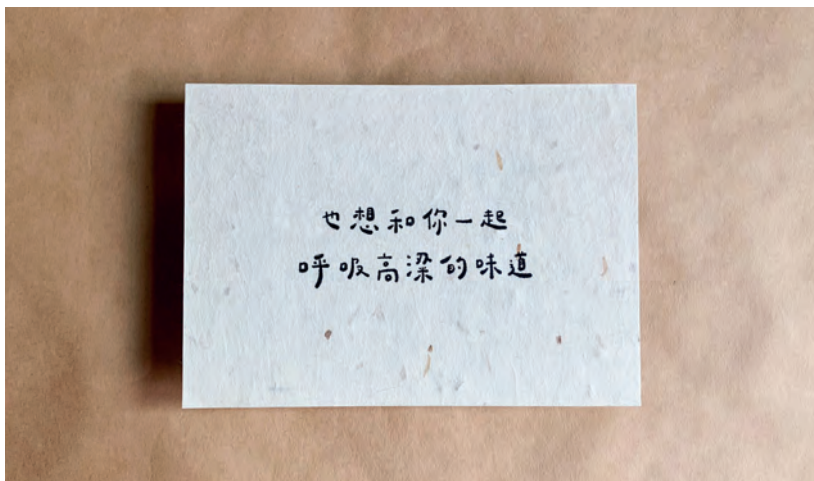 也想和你一起
呼吸高梁的味道